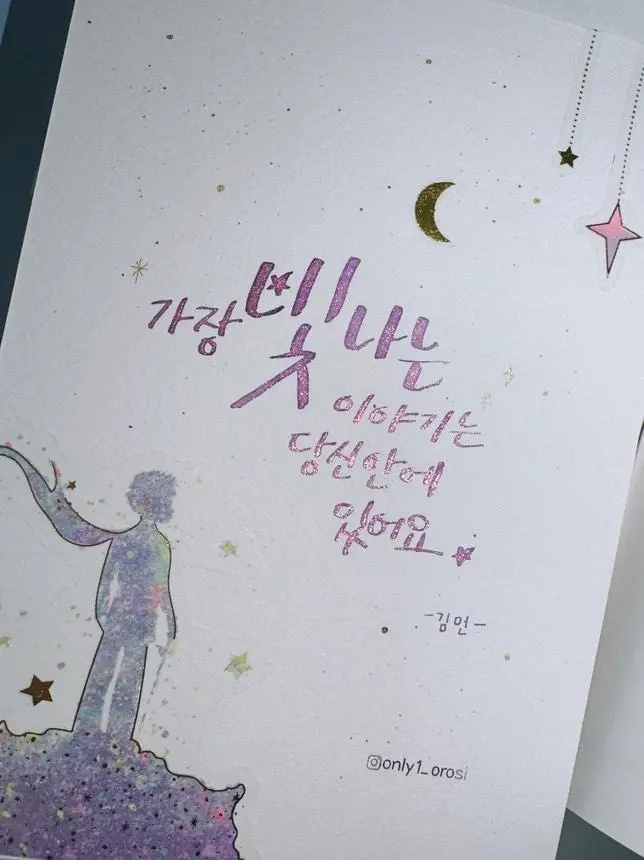 가장 빛나는
이야기는
당신 안에
있어요
-김먼-
only1_orosi